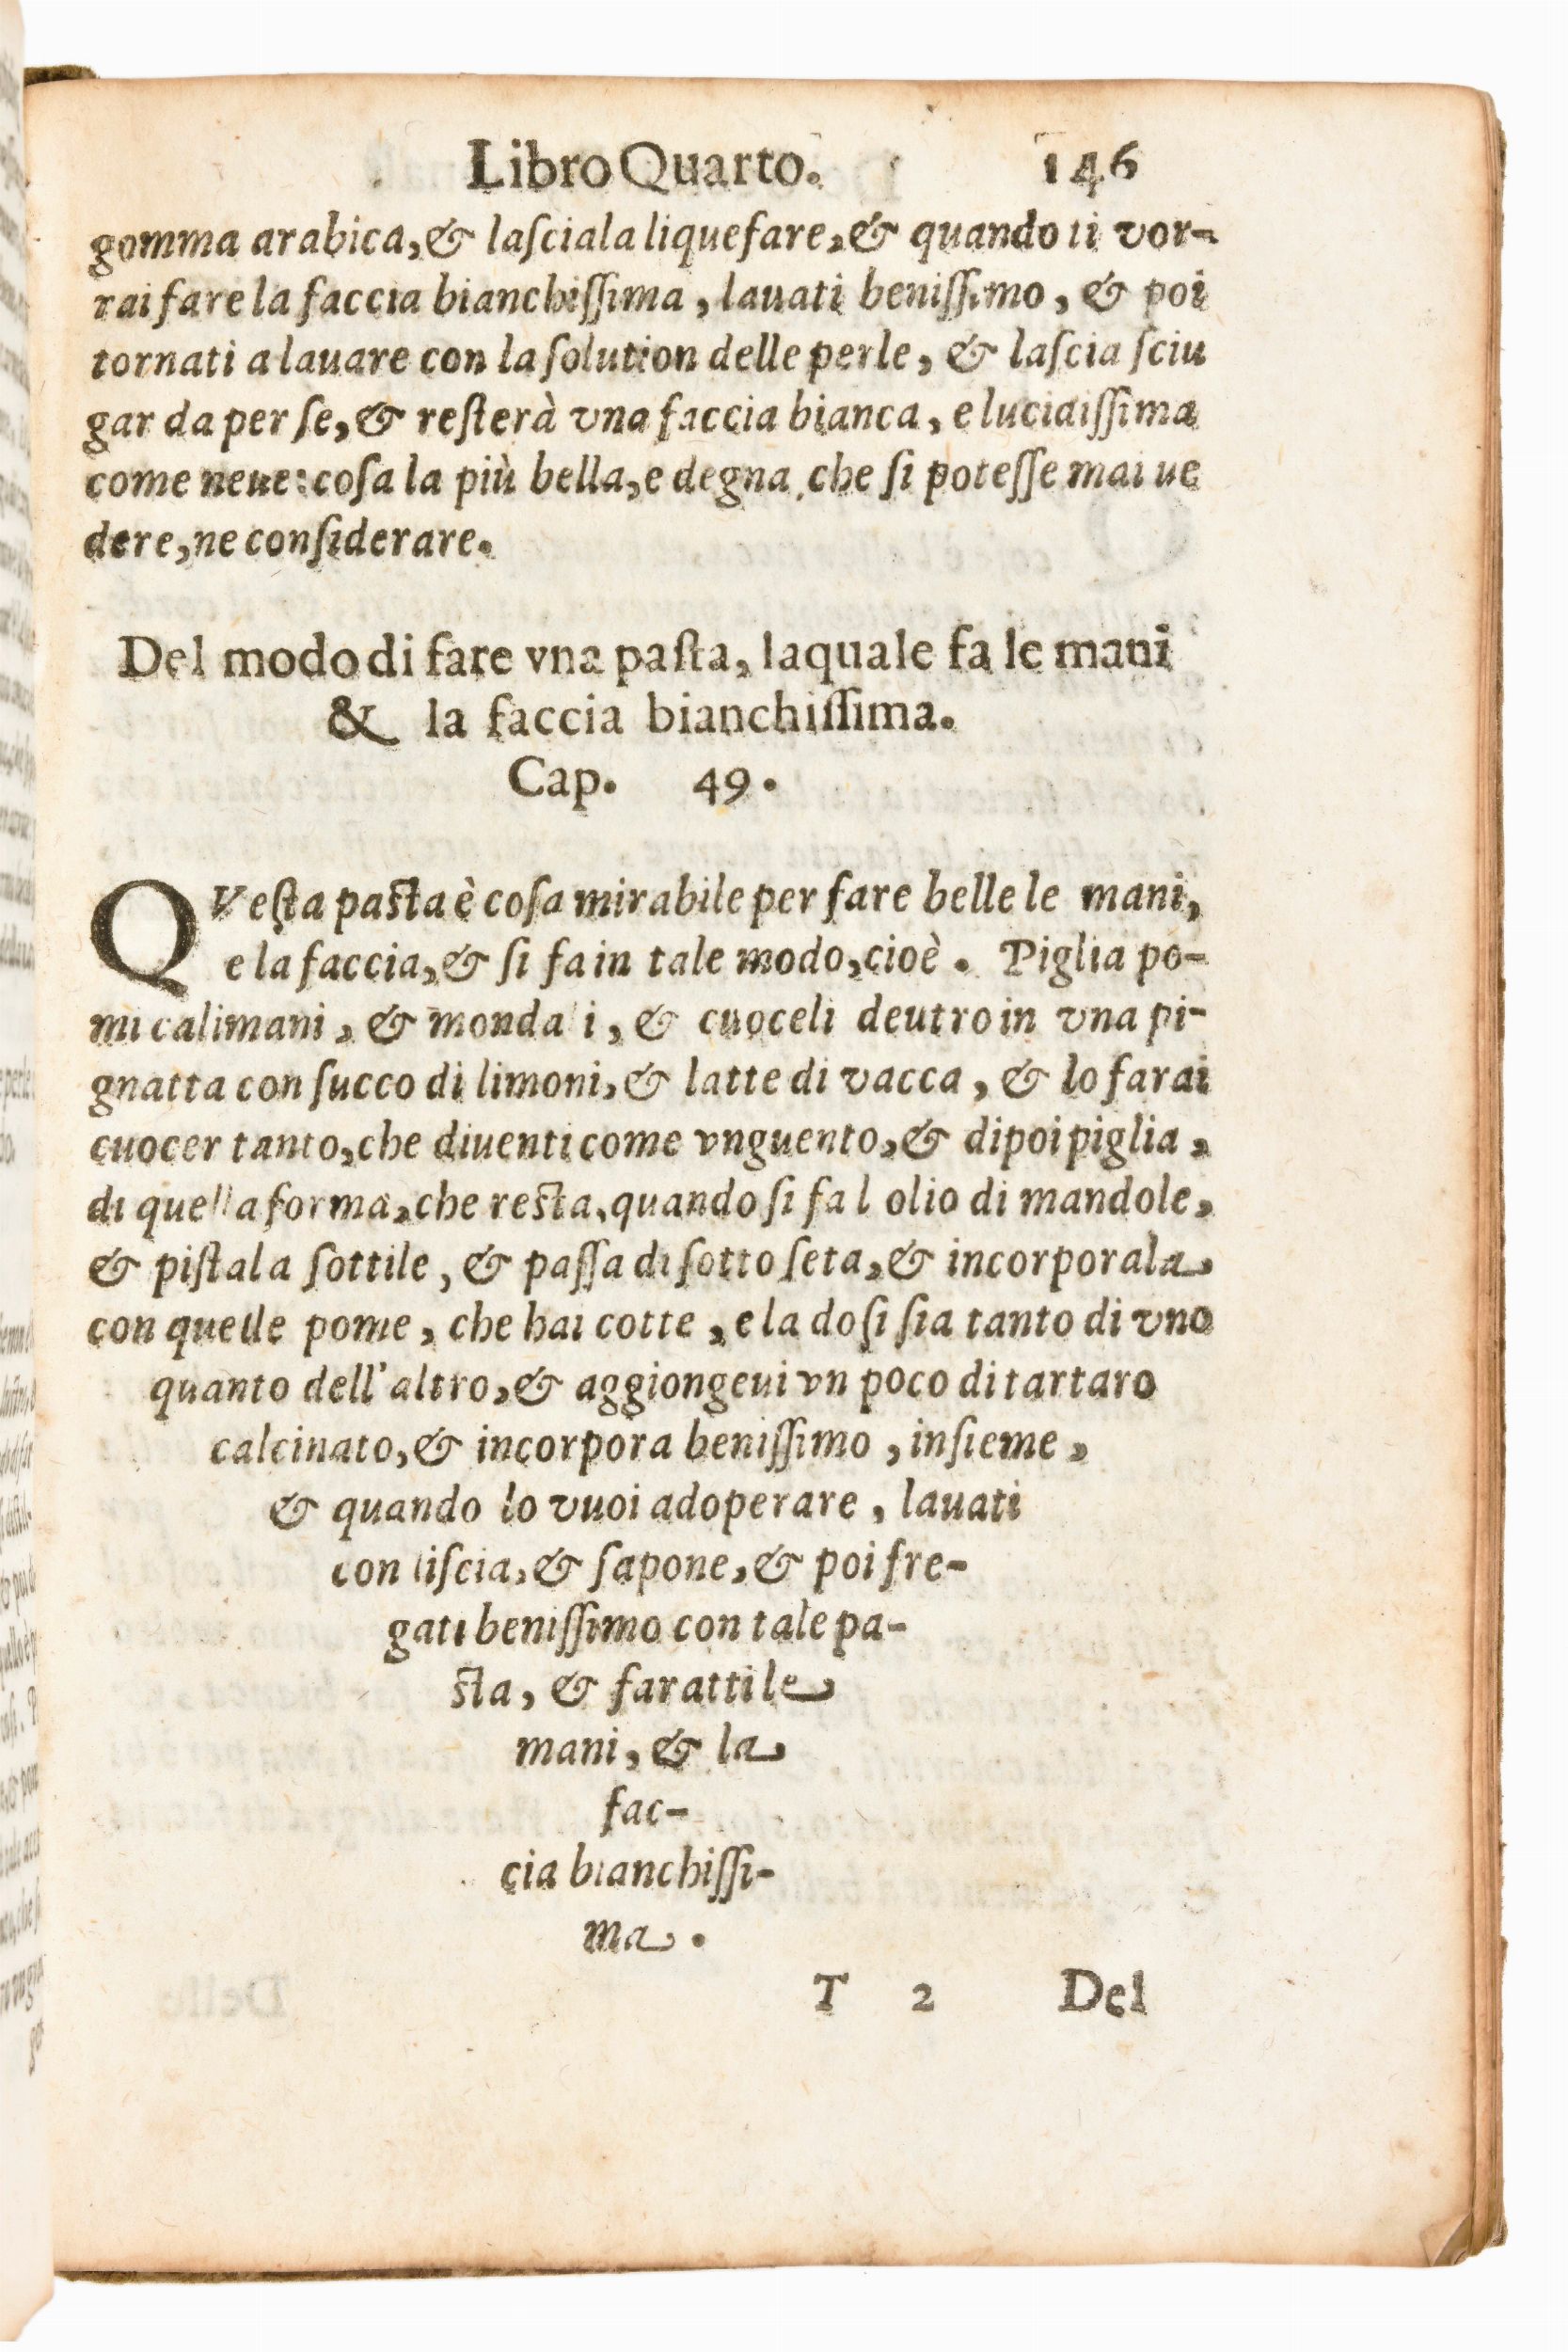 Libro Quarto. 146
gomma arabica, & lasciala liquefare, & quando ti vor-
rai fare la faccia bianchissima, lauati benissimo, & poi
tornati a lauare con la solution delle perle, & lascia sciu
gar da per se, & resterà vna faccia bianca, e lucidissima
come neue: cosa la più bella, e degna, che si potesse mai ue
dere, ne considerare.
Del modo di fare vna pasta, laquale fa le mani
& la faccia bianchissima.
Cap. 49.
QVesta pasta è cosa mirabile per fare belle le mani,
e la faccia, & si fa in tale modo, cioè. Piglia po-
mi calimani, & mondali, & cuoceli deutro in vna pi-
gnatta con succo di limoni, & latte di vacca, & lo farai
cuocer tanto, che diuenti come vnguento, & dipoi piglia,
di quella forma, che resta, quando si fa l olio di mandole,
& pistala sottile, & passa di sotto seta, & incorporala
con quelle pome, che hai cotte, e la dosi sia tanto di vno
quanto dell'altro, & aggiongeui vn poco di tartaro
calcinato, & incorpora benissimo, insieme,
& quando lo vuoi adoperare, lauati
con liscia, & sapone, & poi fre-
gati benissimo con tale pa-
sta, & faratti le
mani, & la
fac-
cia bianchissi-
ma.
T 2 Del